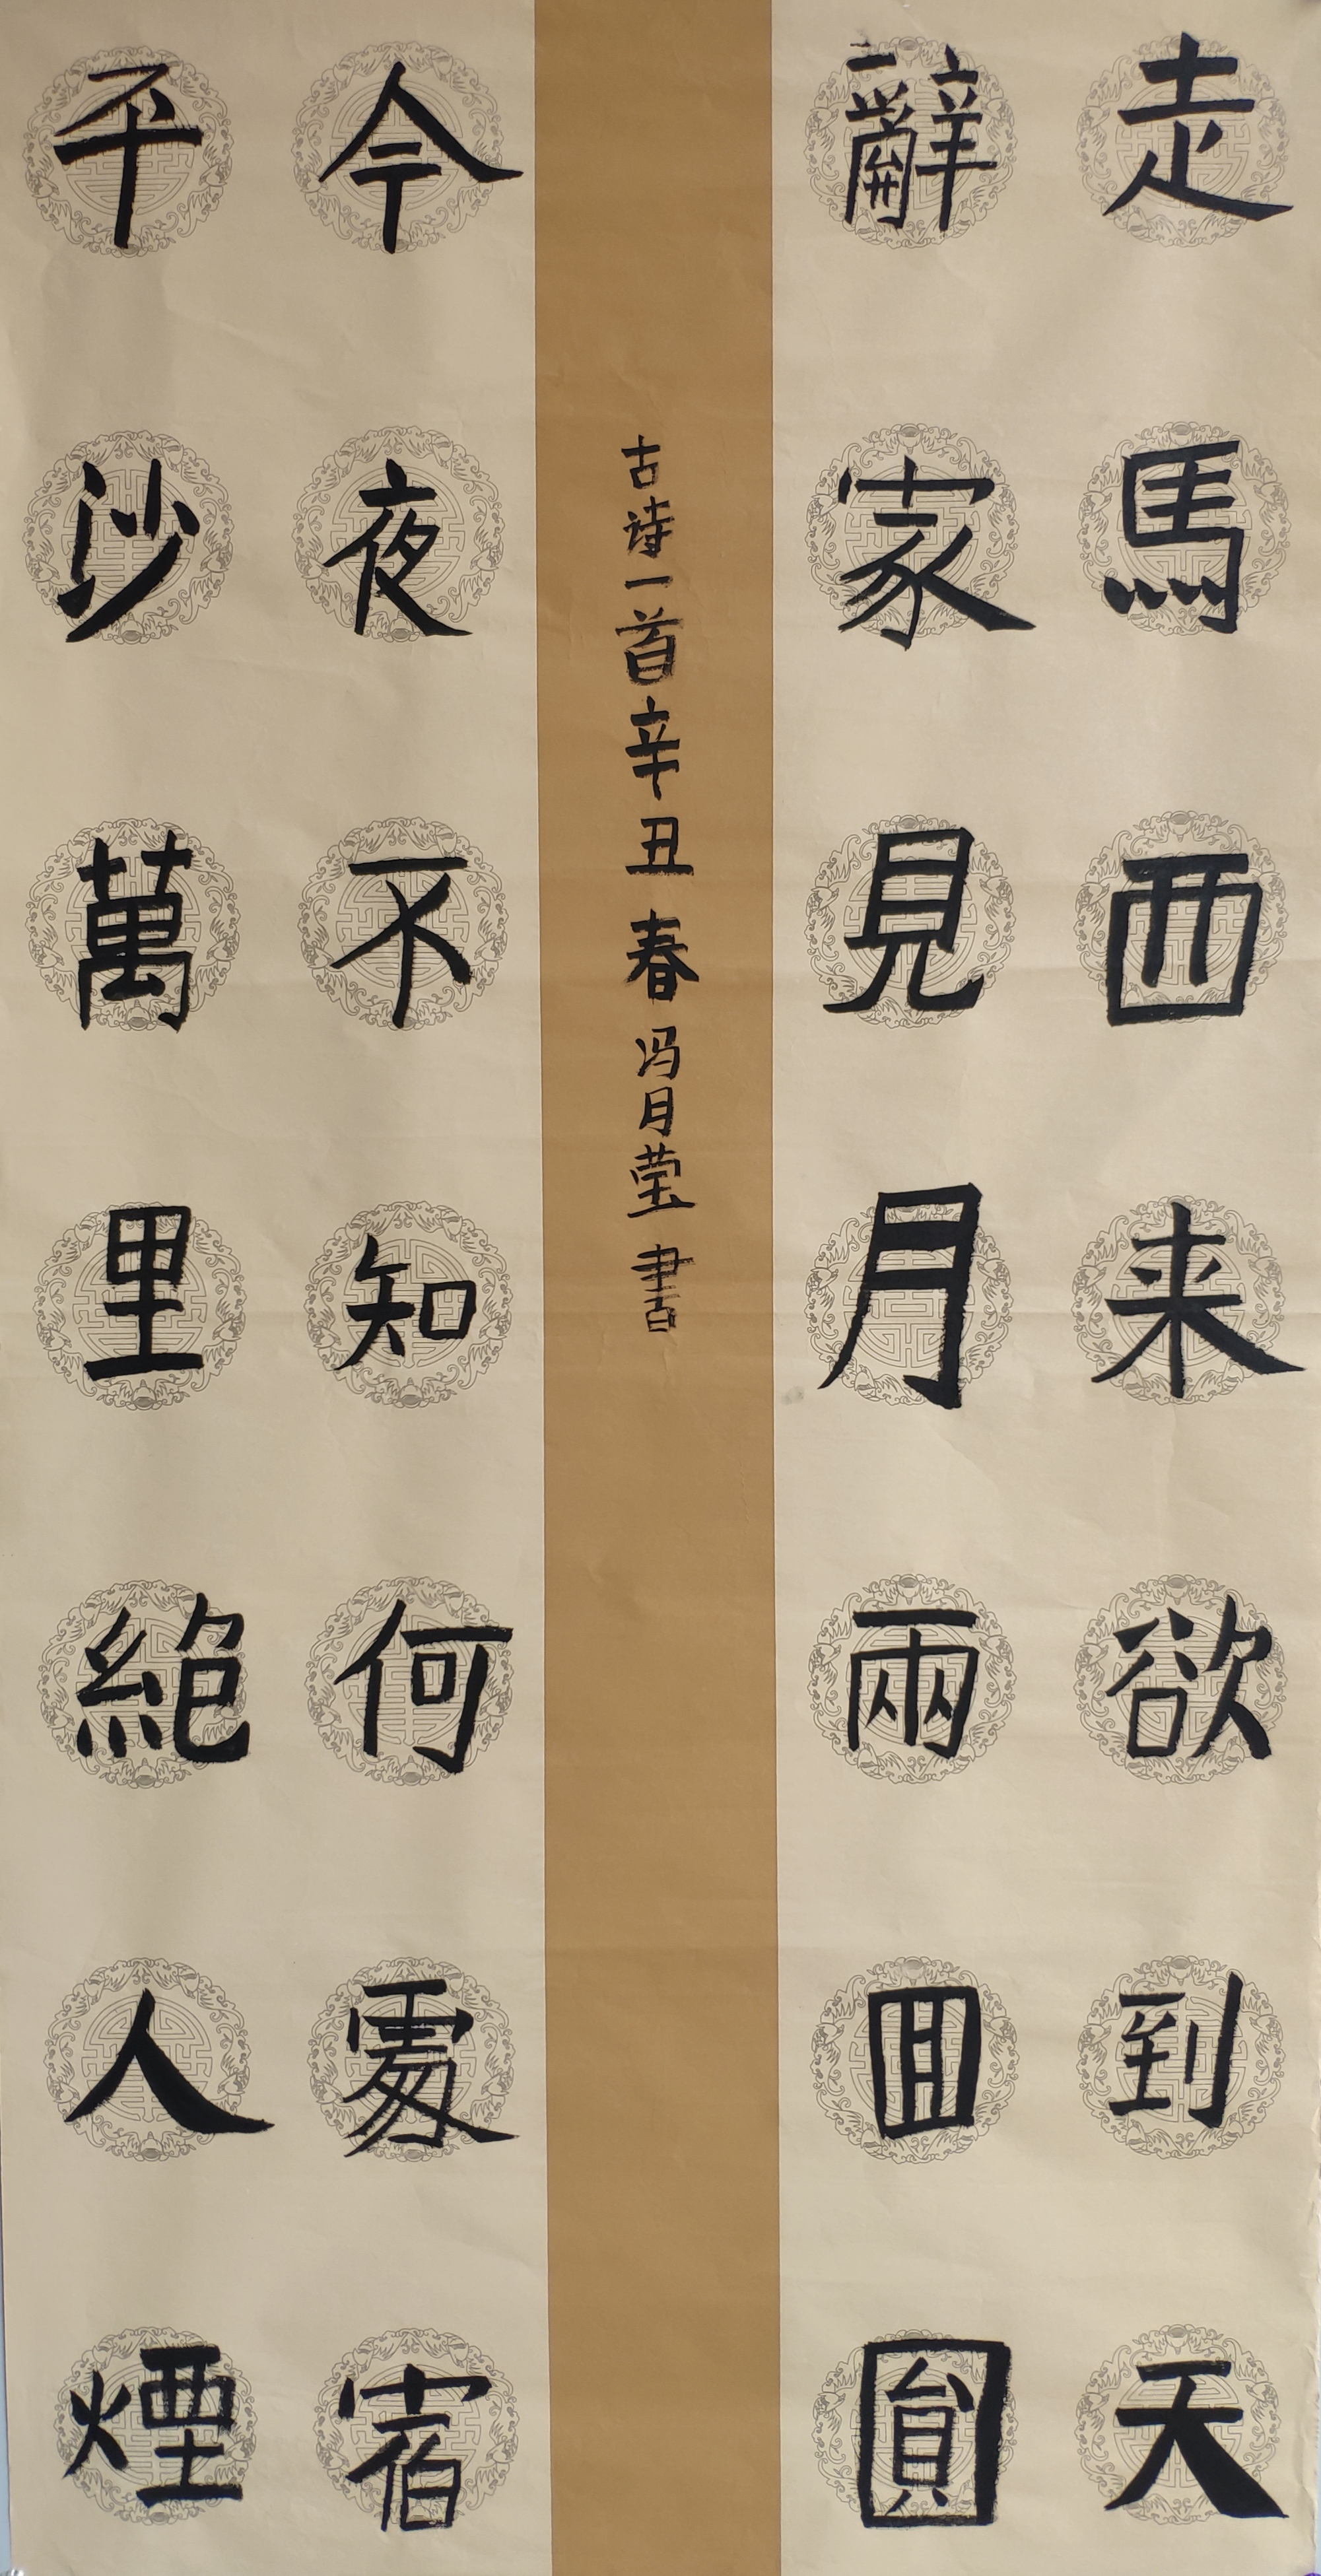 走馬西来欲到天
辭家見月兩回圓
今夜不知何處宿
平沙萬里絕人煙
古诗一首辛丑春冯月莹書